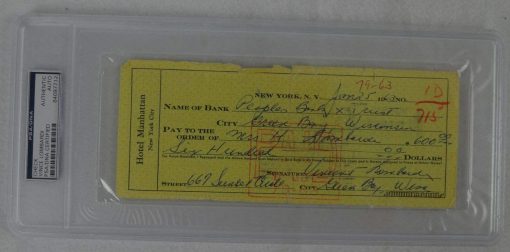 PSA/DNA
AUTHENTIC
AUTO
CHECK
VINCE LOMBARDI
POSTING CERTIFIED
84097132
Hotel Manhattan
New York City
79-63
1D
713
NEW YORK, N. Y. June 5
NAME OF BANK Peoples Bank & Trust
CITY Green Bay Wisconsin
PAY TO THE
ORDER OF Mrs. V. Lombardi 600.00
Six Hundred DOLLARS
SIGNATURE Vincent Lombardi
STREET 667 Sunset Circle CITY Green Bay Wisc